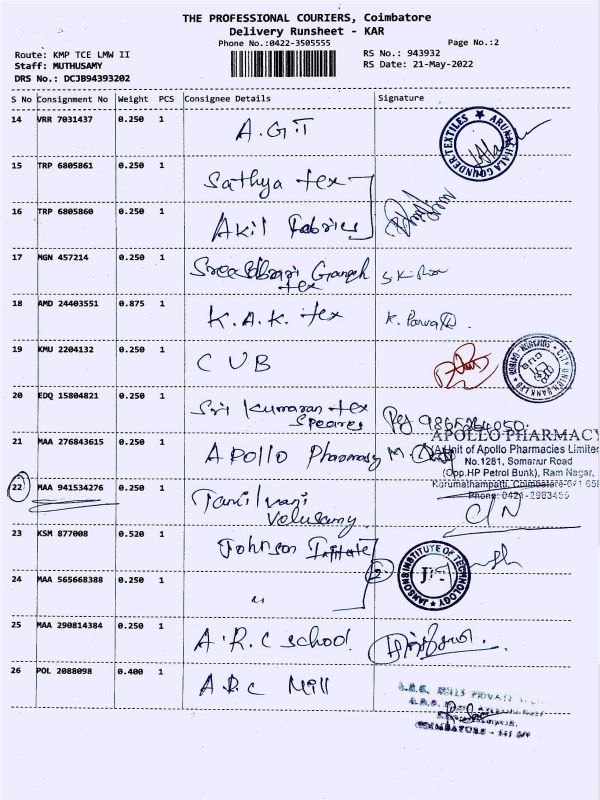 THE PROFESSIONAL COURIERS, Coimbatore
Delivery Runsheet - KAR
Phone No.:0422-3505555
Page No.:2
Route: KMP TCE LMW II
RS No.: 943932
Staff: MUTHUSAMY
RS Date: 21-May-2022
DRS No.: DCJB94393202
S No Consignment No Weight PCS Consignee Details Signature
14 VRR 7031437 0.250 1 A.G.T
ARUNACHALA GOUNDER TEXTILES
15 TRP 6805861 0.250 1 Sathya tex
16 TRP 6805860 0.250 1 Akil Fabrics
17 MGN 457214 0.250 1 Ganesh
tex
18 AMD 24403551 0.875 1 K.A.K. tex K.
19 KMU 2204132 0.250 1 C U B
CITY UNION BANK LTD
CUB
20 EDQ 15804821 0.250 1 Sri Kumaran tex
Speares
21 MAA 276843615 0.250 1 Apollo Pharmacy M.
APOLLO PHARMACY
(A Unit of Apollo Pharmacies Limited
No.1281, Somanur Road
(Opp.HP Petrol Bunk), Ram Nagar,
Karumathampatti, Coimbatore-641
Phone: 0421-2963455
22 MAA 941534276 0.250 1 Tamilvani
Velusamy
C/N
23 KSM 877008 0.520 1 Johnson
2
JANSONS INSTITUTE OF TECHNOLOGY
JIT
24 MAA 565668388 0.250 1 "
25 MAA 290814384 0.250 1 A.R.C school
26 POL 2088098 0.400 1 A.R.C Mill
MILLS PRIVATE
COIMBATORE - 641